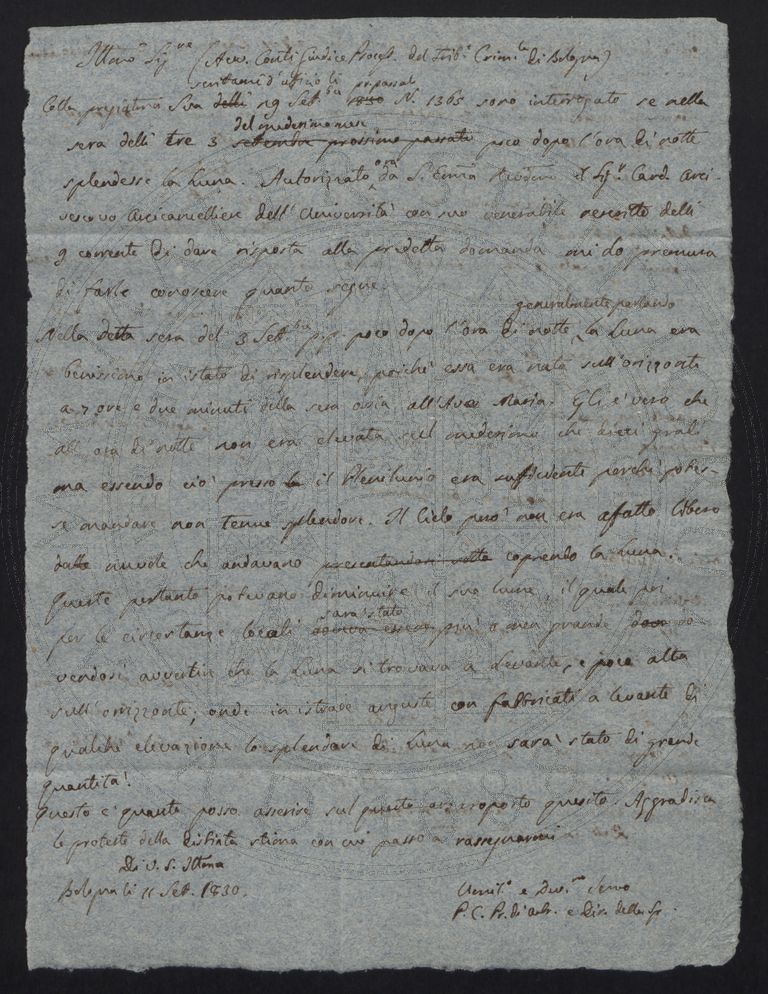 Illmo Sig.re (Avv. Conti Giudice Process. del Trib.e Crim.le di Bologna)
scrittami d'ufficio li pp. passat.
Colla pregiatma Sua delli 29 Set.bre 1830 N. 1365 sono interrogato se nella
del medesimo mese
sera delli tre 3 settembre prossimo passato poco dopo l'ora di notte
splendesse la Luna. Autorizzato ora da S. Emma Rđma il Sig.r Card. Arci-
vescovo Arcicancelliere dell'Università con suo venerabile rescritto delli
9 corrente di dare risposta alla predetta domanda mi do premura
di farle conoscere quanto segue.
generalmente parlando
Nella detta sera del 3 Set.bre p.p. poco dopo l'ora di notte, la Luna era
benissimo in istato di risplendere, poichè essa era nata sull'orizzonte
a 7 ore e due minuti della sera ossia all'Ave Maria. Gli è vero che
all'ora di notte non era elevata sul medesimo che dieci gradi
ma essendo ciò presso la il Plenilunio era sufficiente perchè potes-
se mandare non tenue splendore. Il Cielo però non era affatto libero
dalle nuvole che andavano coprendo la Luna.
Queste pertanto potevano diminuire il suo lume, il quale poi
sarà stato
per le circostanze locali doveva essere più o men grande do
vendosi avvertire che la Luna si trovava a Levante, e poco alta
sull'orizzonte, onde in istrade anguste con fabbricati a levante di
qualche elevazione lo splendore di Luna non sarà stato di grande
quantità.
Questo è quanto posso asserire sul propostomi quesito. Aggradisca
le proteste della distinta stima con cui passo a rassegnarmi
Di V. S. Illma
Bologna li 11 Set. 1830.
Umil.o e Dev.mo Servo
P. C. Pr. di Astr. e Dir. della Sp.